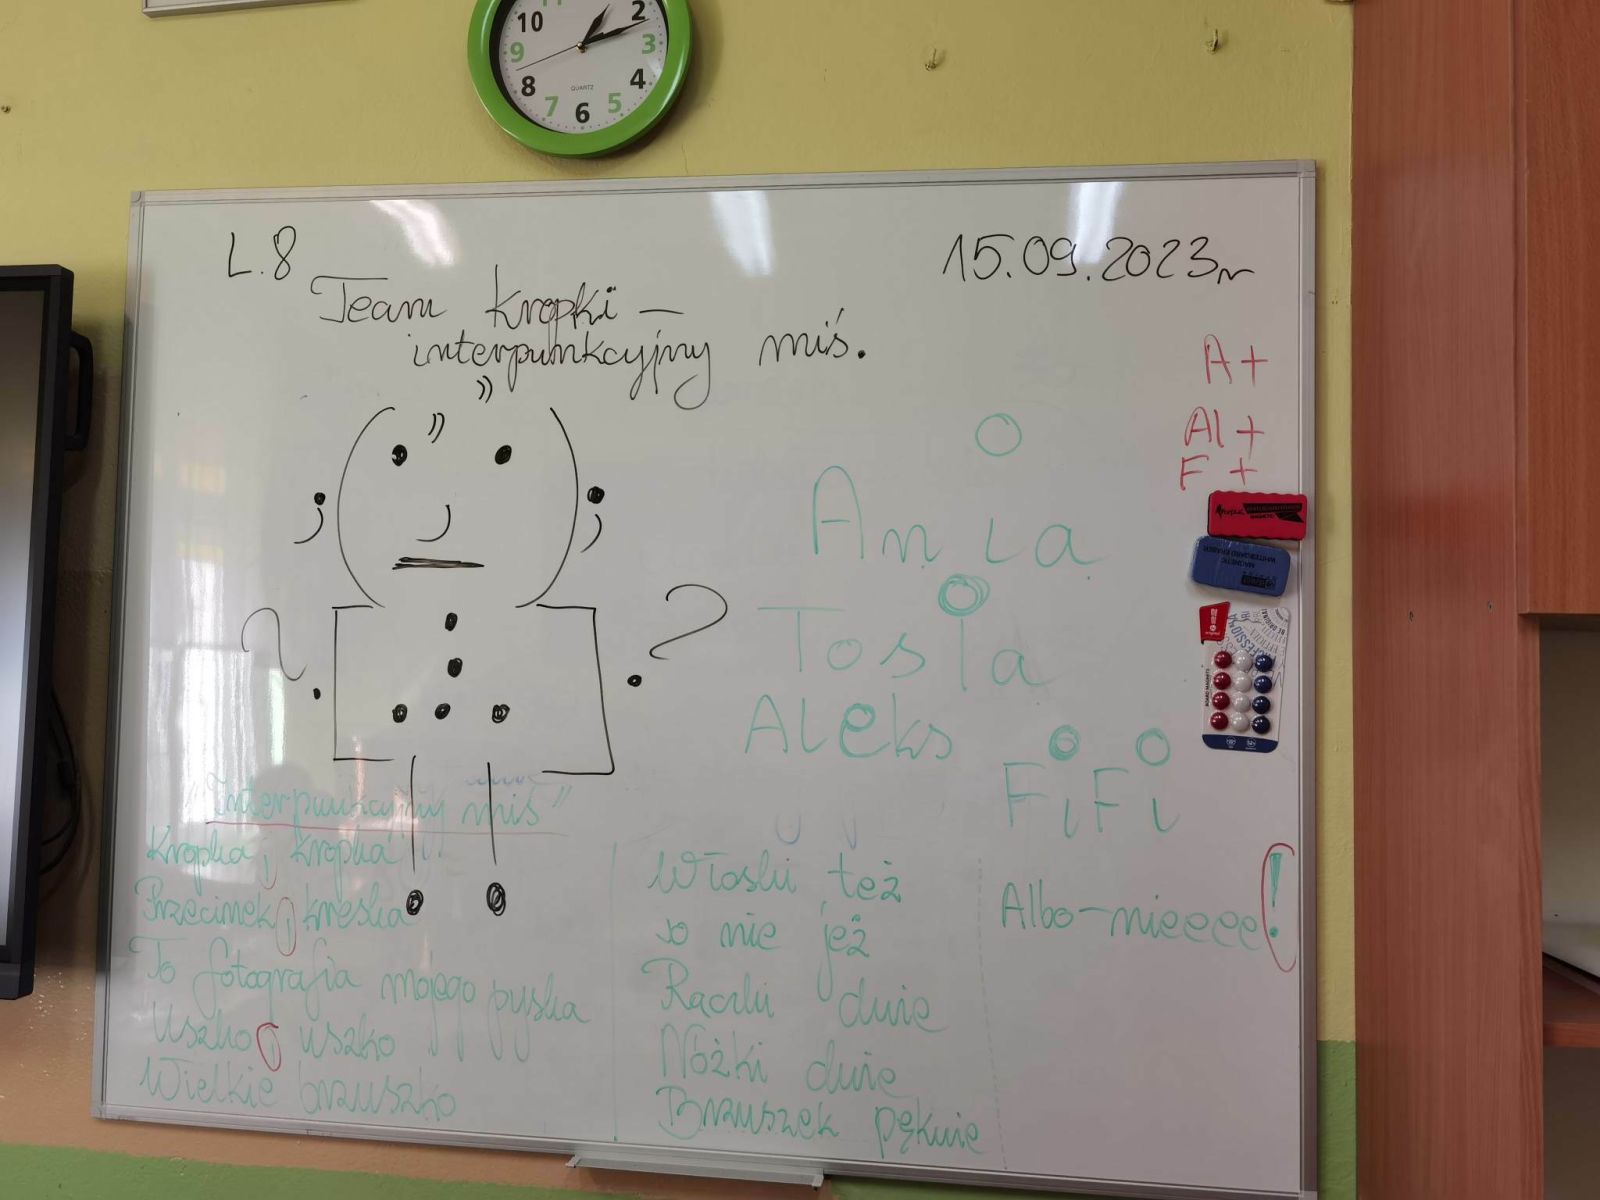 10 11 2 3 4 5 6 7 8 9
QUARTZ
L.8
15.09.2023r
Team kropki –
interpunkcyjny miś.
A+
Al+
F +
Ania
Tosia
Aleks
FiFi
WHITEBOARD ERASER
MAGNETIC
BOARD MAGNETS
"Interpunkcyjny miś"
Kropka, kropka
Przecinek, kreska
To fotografia mojego pyska
Uszko, uszko
Wielkie brzuszko
Włoski też
so nie jeż
Rączki dwie
Nóżki dwie
Brzuszek pęknie
Albo-nieeee!